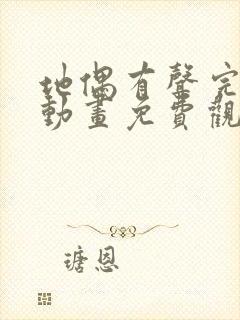 地偶有聲完
動畫免費觀
瑭恩